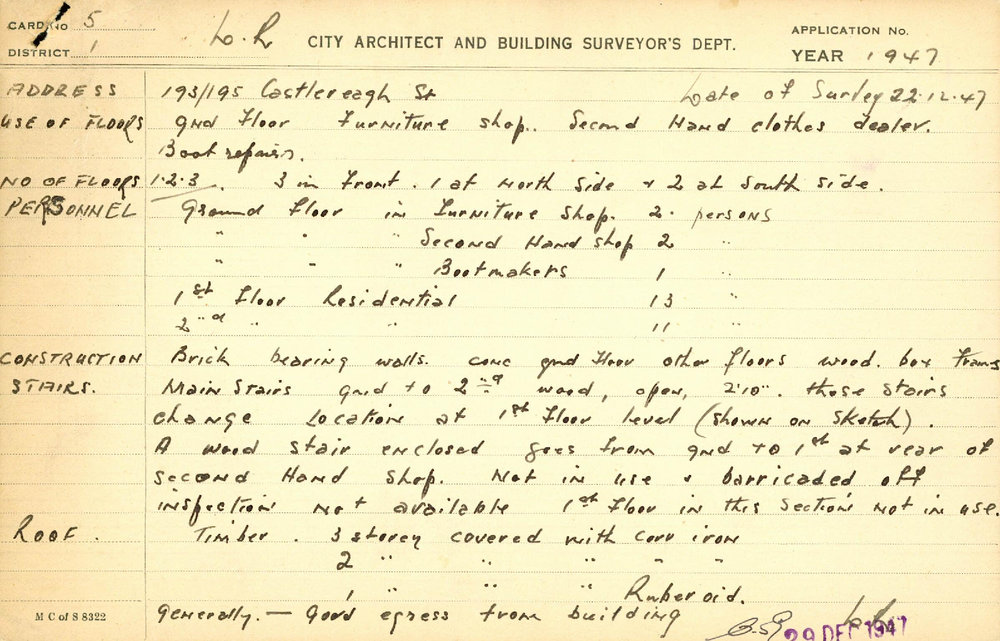 CARD No 5
DISTRICT 1
L. R
CITY ARCHITECT AND BUILDING SURVEYOR'S DEPT.
APPLICATION No.
YEAR 1947
ADDRESS 193/195 Castlereagh St Date of Survey 22.12.47
USE OF FLOORS Gnd Floor Furniture shop. Second Hand clothes dealer.
Boot repairs.
NO OF FLOORS 1.2.3. 3 in Front. 1 at North Side & 2 at South side.
PERSONNEL Ground Floor in Furniture Shop. 2. persons
" " " Second Hand shop 2 "
" " " Bootmakers 1 "
1st Floor Residential 13 "
2nd " " 11 "
CONSTRUCTION Brick bearing walls. conc gnd Floor other floors wood. box
STAIRS. Main Stairs gnd to 2nd wood, open, 2'10". these stairs
change location at 1st Floor level (shown on sketch).
A wood stair enclosed goes from gnd to 1st at rear of
second Hand Shop. Not in use & barricaded off
inspection not available 1st Floor in this section not in use.
ROOF. Timber. 3 storey covered with corr iron
2 " " " " "
1 " " " Ruberoid.
Generally. — Good egress from building
M C of S 8322
29 DEC 1947